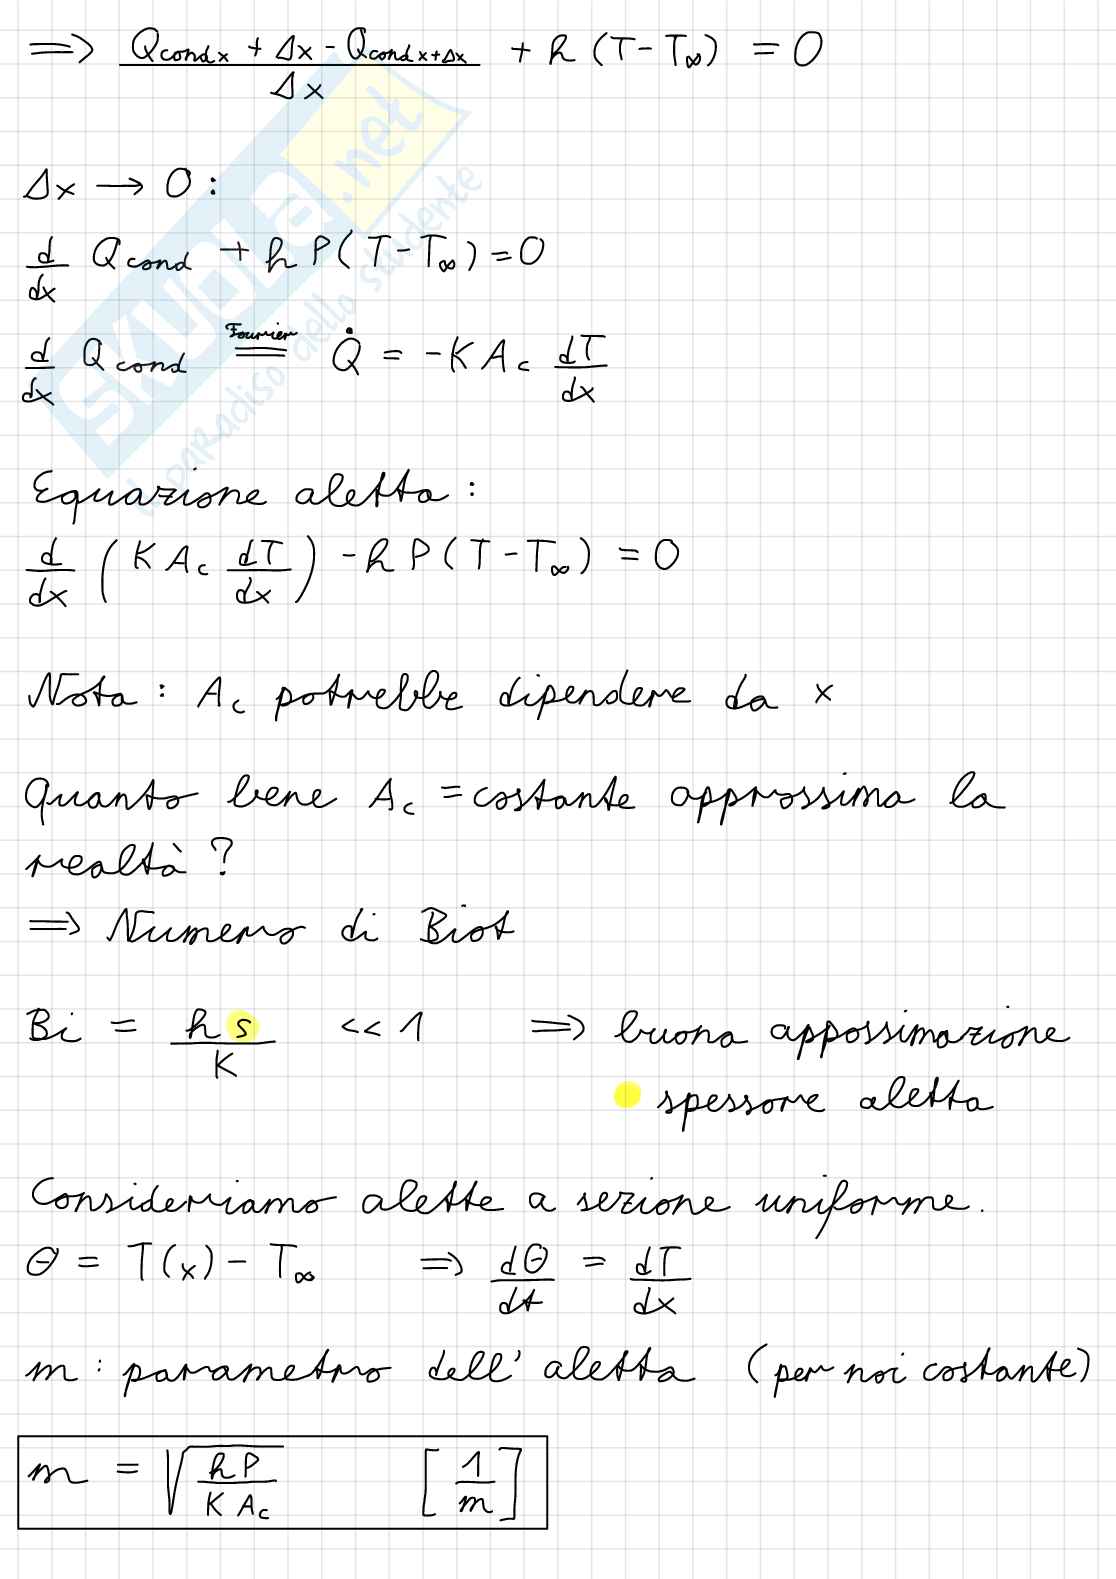 => (Qcond x + Δx - Qcond x+Δx) / Δx + h (T - T∞) = 0
Δx → 0 :
d/dx Qcond + h P (T - T∞) = 0
d/dx Qcond =(Fourier)= Q̇ = -K Ac dT/dx
Equazione aletta :
d/dx (K Ac dT/dx) - h P (T - T∞) = 0
Nota : Ac potrebbe dipendere da x
Quanto bene Ac = costante approssima la
realtà ?
=> Numero di Biot
Bi = h s / K << 1 => buona appossimazione
spessore aletta
Consideriamo alette a sezione uniforme.
Θ = T(x) - T∞ => dΘ/dt = dT/dx
m : parametro dell' aletta (per noi costante)
m = √(h P / K Ac) [1/m]
SKUOLA.net
il paradiso dello studente